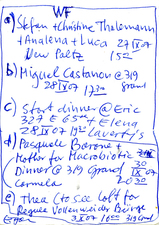 WF
a) Stefan + Christine Thalemann
+ Analena + Luca 27 IV 07
New Paltz 15
b) Miguel Castanov @ 319
28 IV 07 17 30 grand
c) Start dinner @ Eric
327 E 65 + Elena
28 IV 07 19 Laverty's
d) Pasquale Barone +
Mother for Macrobiotic
Dinner @ 319 Grand IX 07
Carmela 20 30
e) Thea (to see loft for
Regula Vollenweider Bürge
07 16 319 Grand